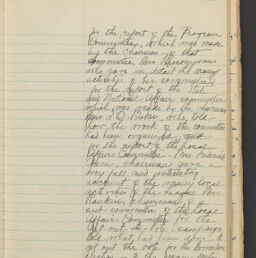 for the report of the Program
Committee, which was made
by the chairman of that
committee Mrs.
who gave in detail the many
activities of her committee
for the report of the State
and National Affairs committee
which was made by the chairman
Mrs. who told
how the work of the committee
had been organized, and
for the report of the Local
Affairs Committee. Mrs. Frederick
chairman gave a
very full and interesting
account of the many local
activities of the League. Mrs.
Hawkins, chairman of a
sub committee of the Local
Affairs Committee for the
Get out the Vote Campaign
told what has been done to
get out the vote for the